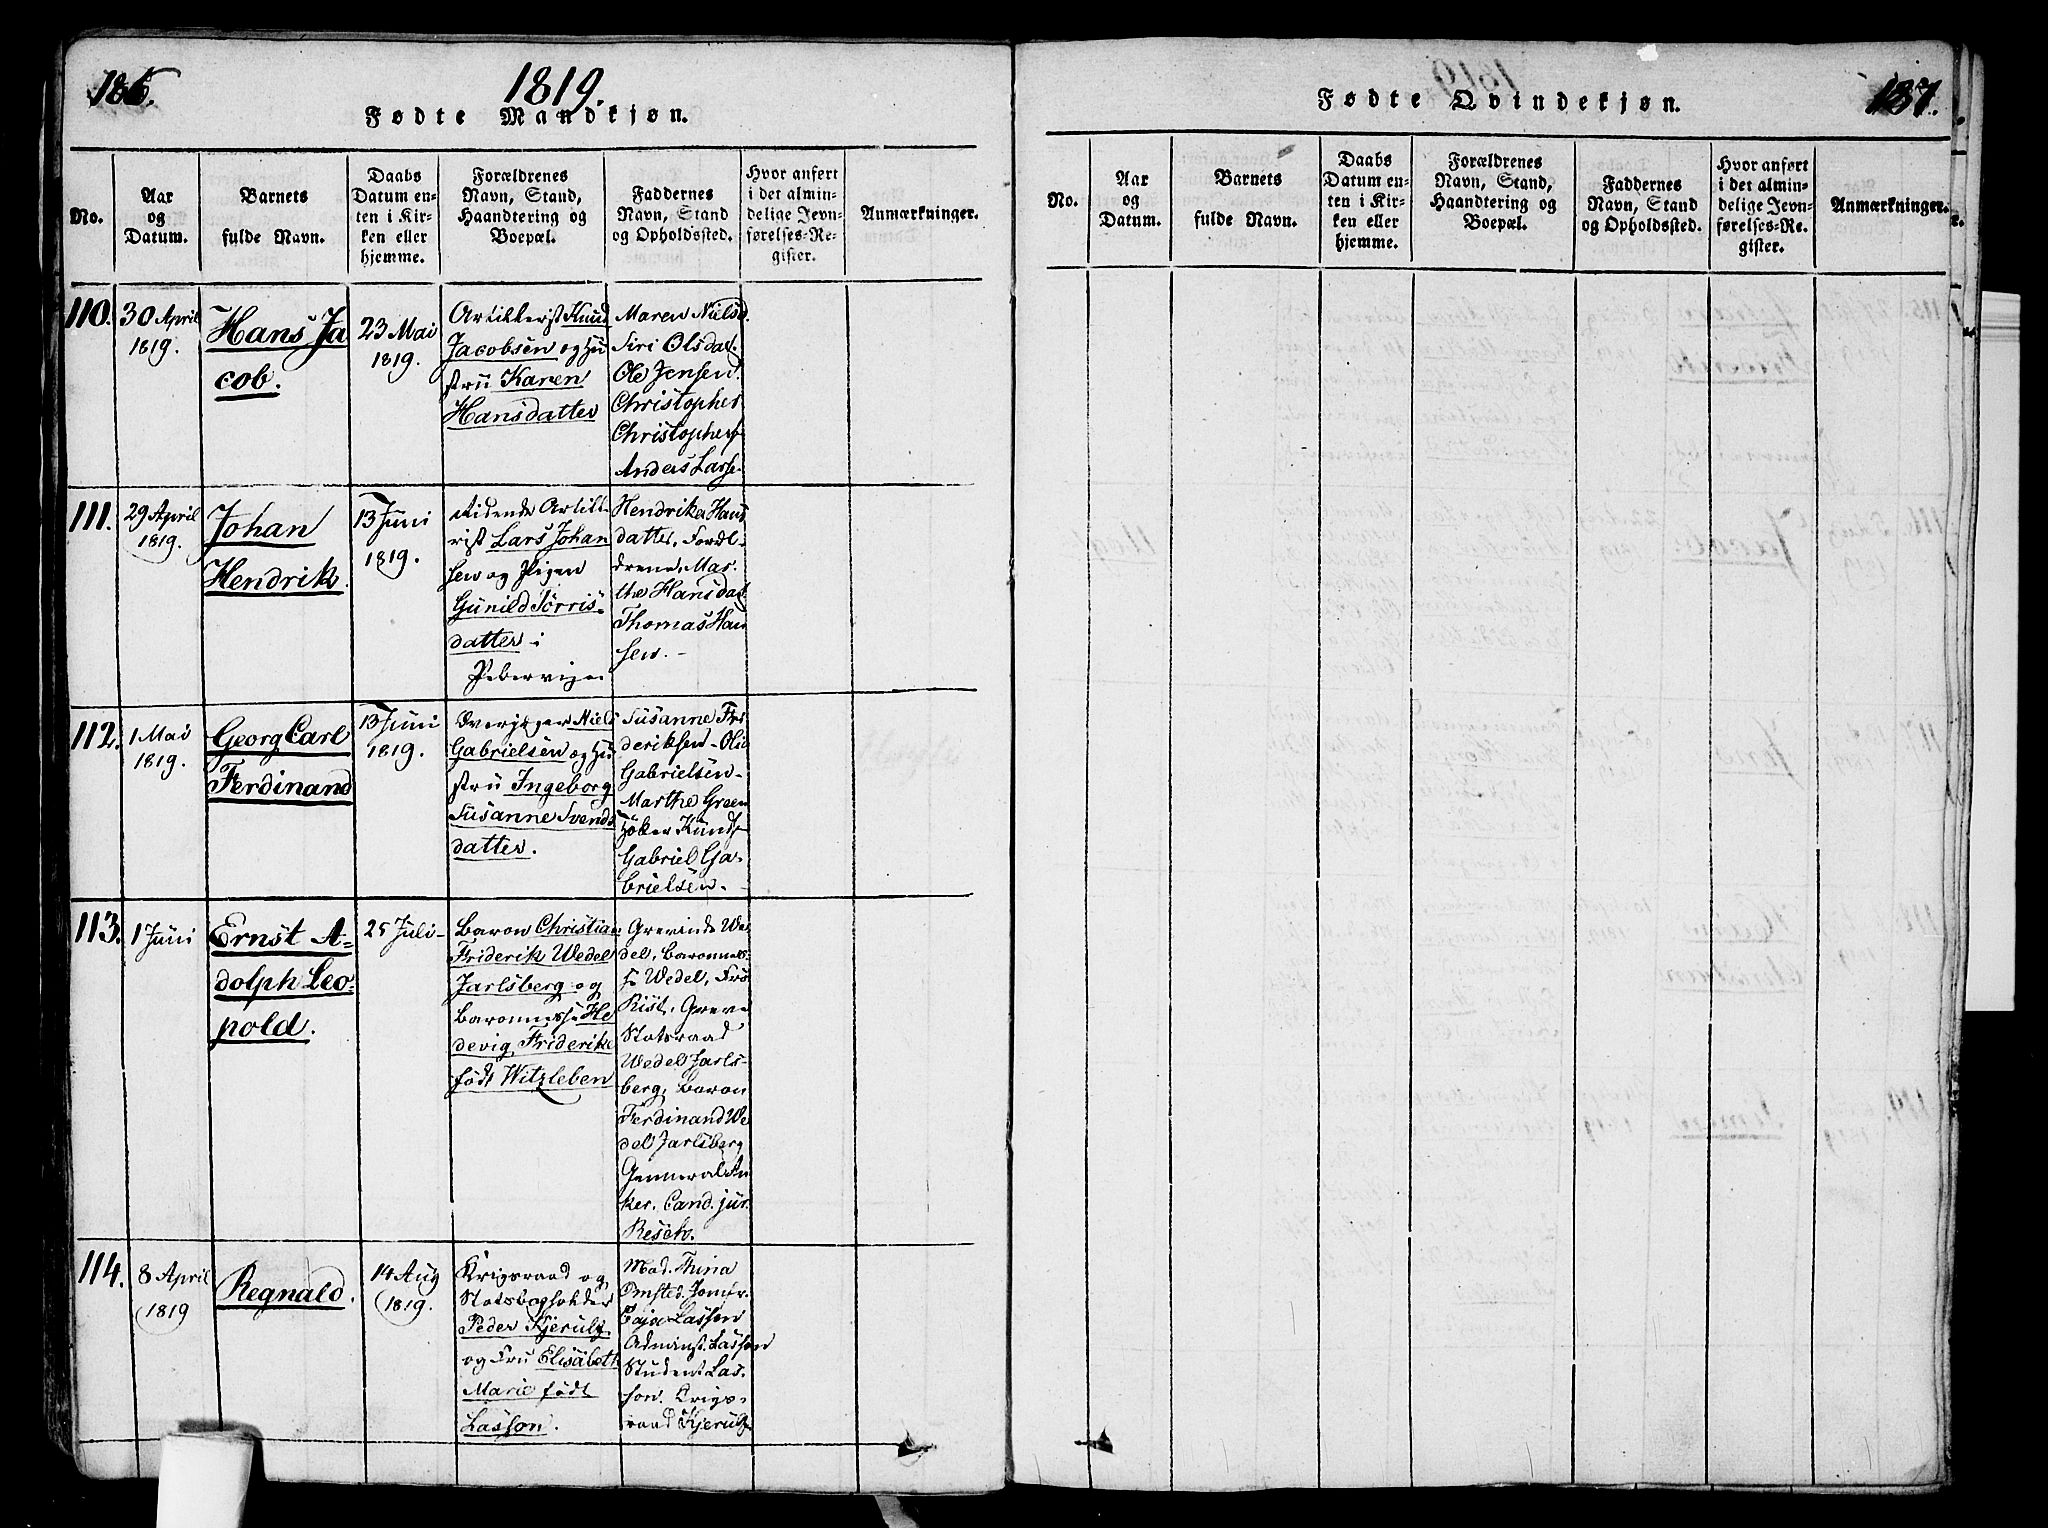 186.
1819.
Fødte Mandkjøn.
No.
Aar
og
Datum.
Barnets
fulde Navn.
Daabs
Datum en-
ten i Kir-
ken eller
hjemme.
Forældrenes
Navn, Stand,
Haandtering og
Boepæl.
Faddernes
Navn, Stand
og Opholdssted.
Hvor anført
i det almin-
delige Jevn-
førelses-Re-
gister.
Anmærkninger.
110.
30 April
1819.
Hans Ja
cob.
23 Mai
1819.
Artillerist Knud
Jacobsen og Hu
stru Karen
Hansdatter
Maren Nielsd.
Siri Olsdat.
Ole Jensen
Christopher
Christophers
Anders Larse-
111.
29 April
1819.
Johan
Hendrik.
13 Juni
1819.
ridende Artille
rist Lars Johan
sen og Pigen
Gunild Torris-
datter i
Pebervigen
Hendriker Hans
datter, Foræl-
drene, Mar-
the Hansdat.
Thomas Han
sen.-
112.
1 Mai
1819.
Georg Carl
Ferdinand
13 Juni
1819.
Overjæger Niels
Gabrielsen og Hu
stru Ingeborg
Susanne Svends
datter.
Susanne Fri
deriksen - Olia
Gabrielsen -
Marthe Green
Höker Knuds
Gabriel Ga-
brielsen. -
113.
1 Juni
Ernst A-
dolph Leo-
pold.
25 Juli-
Baron Christian
Friderik Wedel
Jarlsberg og
Baronnesse He
devig, Friderike
født Witzleben
Grevinde We
del, Baronnes-
se Wedel, Fru
Rist, Greve
Statsraad
Wedel Jarls-
berg, Baron
Ferdinand We
del Jarlsberg
General An
ker. Cand. jur.
Resch.
114.
8 April
1819
Regnald.
14 Aug
1819.
Krigsraad og
Statsbogholder
Peder Kjerulf
og Fru Elisabeth
Marie født
Lasson.
Mad. Thina
Omsted. Jomfr.
Caja Lasson
Adminst. Lasson
Student Las-
son. Krigs-
raad Kjerulf
187.
Fødte Qvindekjøn.
No.
Aar
og
Datum.
Barnets
fulde Navn.
Daabs
Datum en-
ten i Kir-
ken eller
hjemme.
Forældrenes
Navn, Stand,
Haandtering og
Boepæl.
Faddernes
Navn, Stand
og Opholdssted.
Hvor anført
i det almin-
delige Jevn-
førelses-Re-
gister.
Anmærkninger.